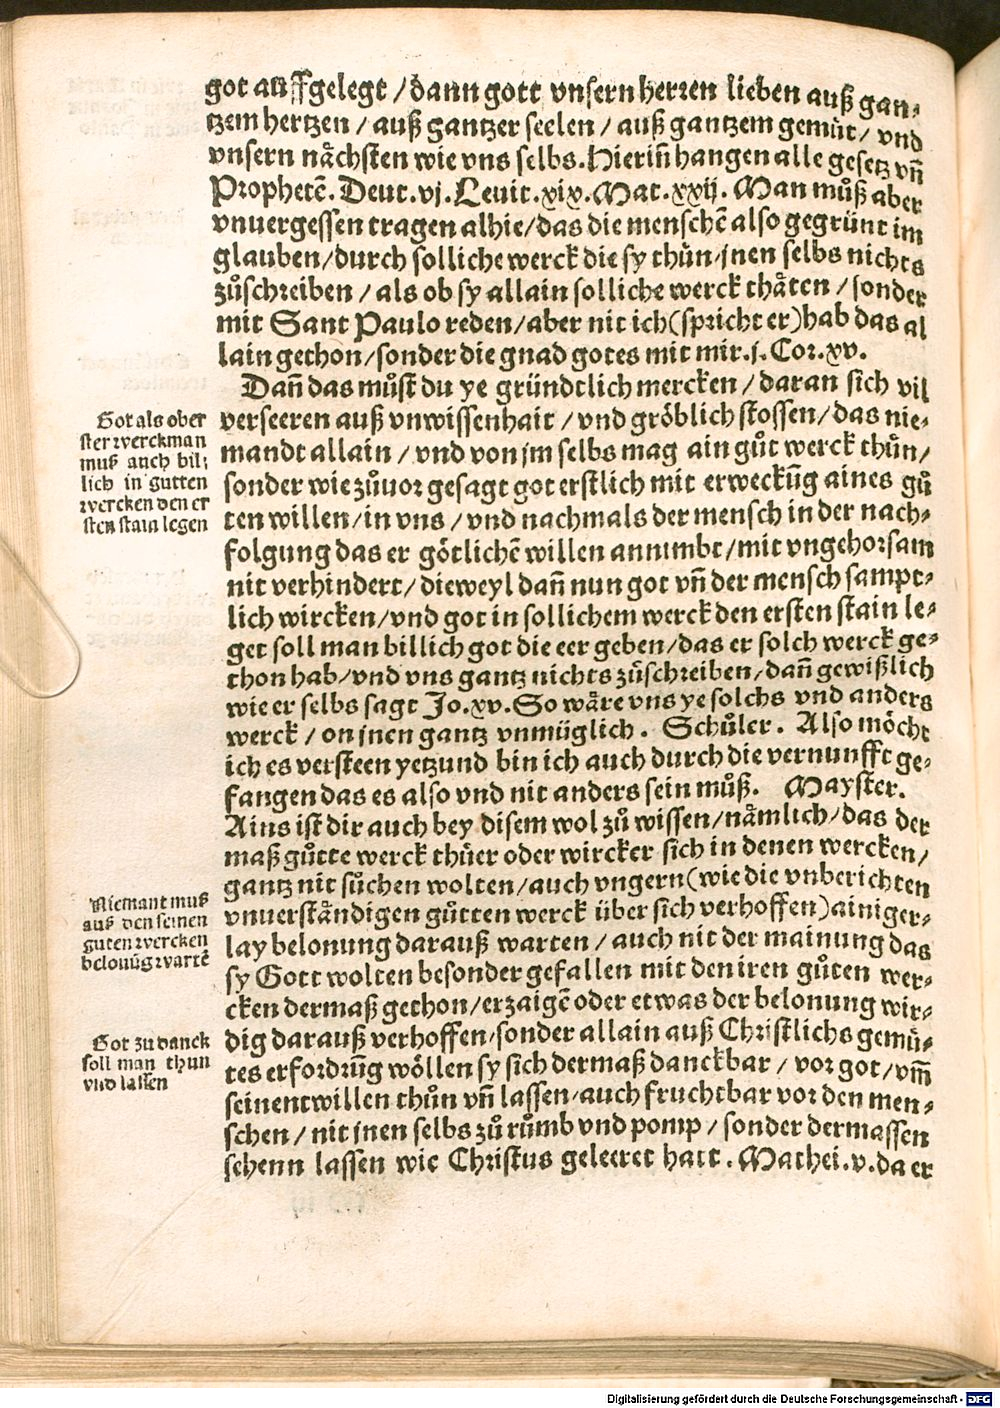 got auffgelegt / dann gott vnsern herren lieben auß gan-
tzem hertzen / auß gantzer seelen / auß gantzem gemuͤt / vnd
vnsern naͤchsten wie vns selbs. Hierin̄ hangen alle gesetz vn̄
Prophetē. Deut. vj. Leuit. xix. Mat. xxij. Man muͦß aber
vnuergessen tragen alhie / das die menschē also gegrünt im
glauben / durch solliche werck die sy thuͦn / jnen selbs nichts
zuͦschreiben / als ob sy allain solliche werck thaͤten / sonder
mit Sant Paulo reden / aber nit ich (spricht er) hab das al
lain gethon / sonder die gnad gotes mit mir. j. Cor. xv.
Dan̄ das muͦst du ye gründtlich mercken / daran sich vil
verseeren auß vnwissenhait / vnd gröblich stossen / das nie-
mandt allain / vnd von jm selbs mag ain guͦt werck thuͦn /
sonder wie zuͦuor gesagt got erstlich mit erweckūg aines guͦ
ten willen / in vns / vnd nachmals der mensch in der nach-
folgung das er götlichē willen annimbt / mit vngehorsam
nit verhindert / dieweyl dan̄ nun got vn̄ der mensch sampt-
lich wircken / vnd got in sollichem werck den ersten stain le-
get soll man billich got die eer geben / das er solch werck ge-
thon hab / vnd vns gantz nichts zuͦschreiben / dan̄ gewißlich
wie er selbs sagt Jo. xv. So waͤre vns ye solchs vnd anders
werck / on jnen gantz vnmüglich. Schuͦler. Also möcht
ich es versteen yetzund bin ich auch durch die vernunfft ge-
fangen das es also vnd nit anders sein muͦß. Mayster.
Ains ist dir auch bey disem wol zuͦ wissen / naͤmlich / das der
maß guͦtte werck thuͤer oder wircker sich in denen wercken /
gantz nit suͦchen wolten / auch vngern (wie die vnberichten
vnuerstaͤndigen guͦtten werck über sich verhoffen) ainiger-
lay belonung darauß warten / auch nit der mainung das
sy Gott wolten besonder gefallen mit den iren guͦten wer-
cken dermaß gethon / erzaigē oder etwas der belonung wir-
dig darauß verhoffen / sonder allain auß Christlichs gemuͤ-
tes erfordrūg wöllen sy sich dermaß danckbar / vor got / vm̄
seinentwillen thuͦn vn̄ lassen / auch fruchtbar vor den men-
schen / nit jnen selbs zuͦ ruͦmb vnd pomp / sonder dermassen
sehenn lassen wie Christus geleeret hatt. Mathei. v. da er
Got als ober
ster werckman
muß auch bil-
lich in gutten
wercken den er
sten stain legen
Niemant muß
auß den seinen
guten wercken
belonūg wartē
Got zu danck
soll man thun
vnd lassen
Digitalisierung gefördert durch die Deutsche Forschungsgemeinschaft - DFG